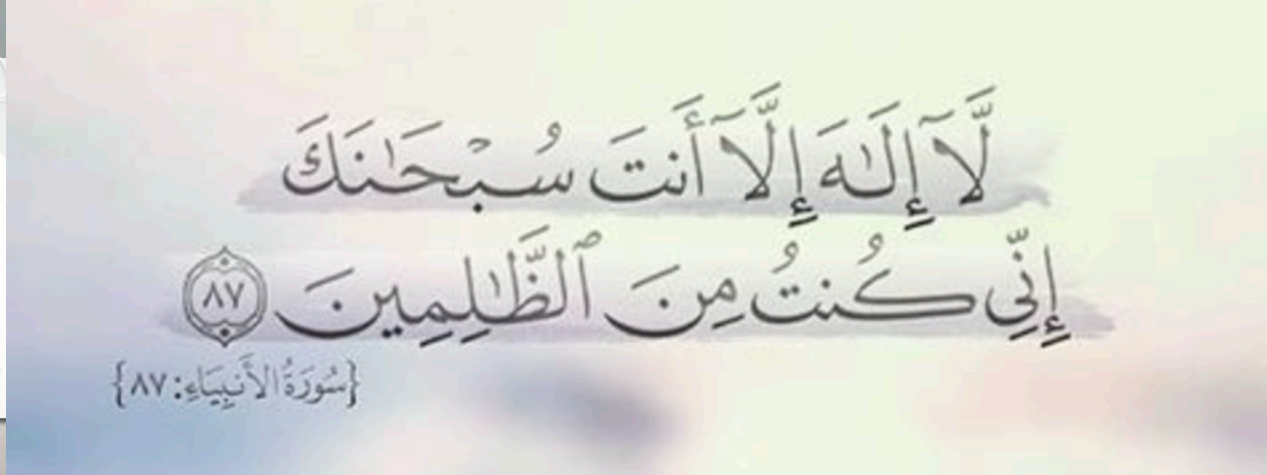 لَّآ إِلَـٰهَ إِلَّآ أَنتَ سُبْحَـٰنَكَ
إِنِّى كُنتُ مِنَ ٱلظَّـٰلِمِينَ ٨٧
{سُورَةُ الأَنبِيَاءِ: ٨٧}